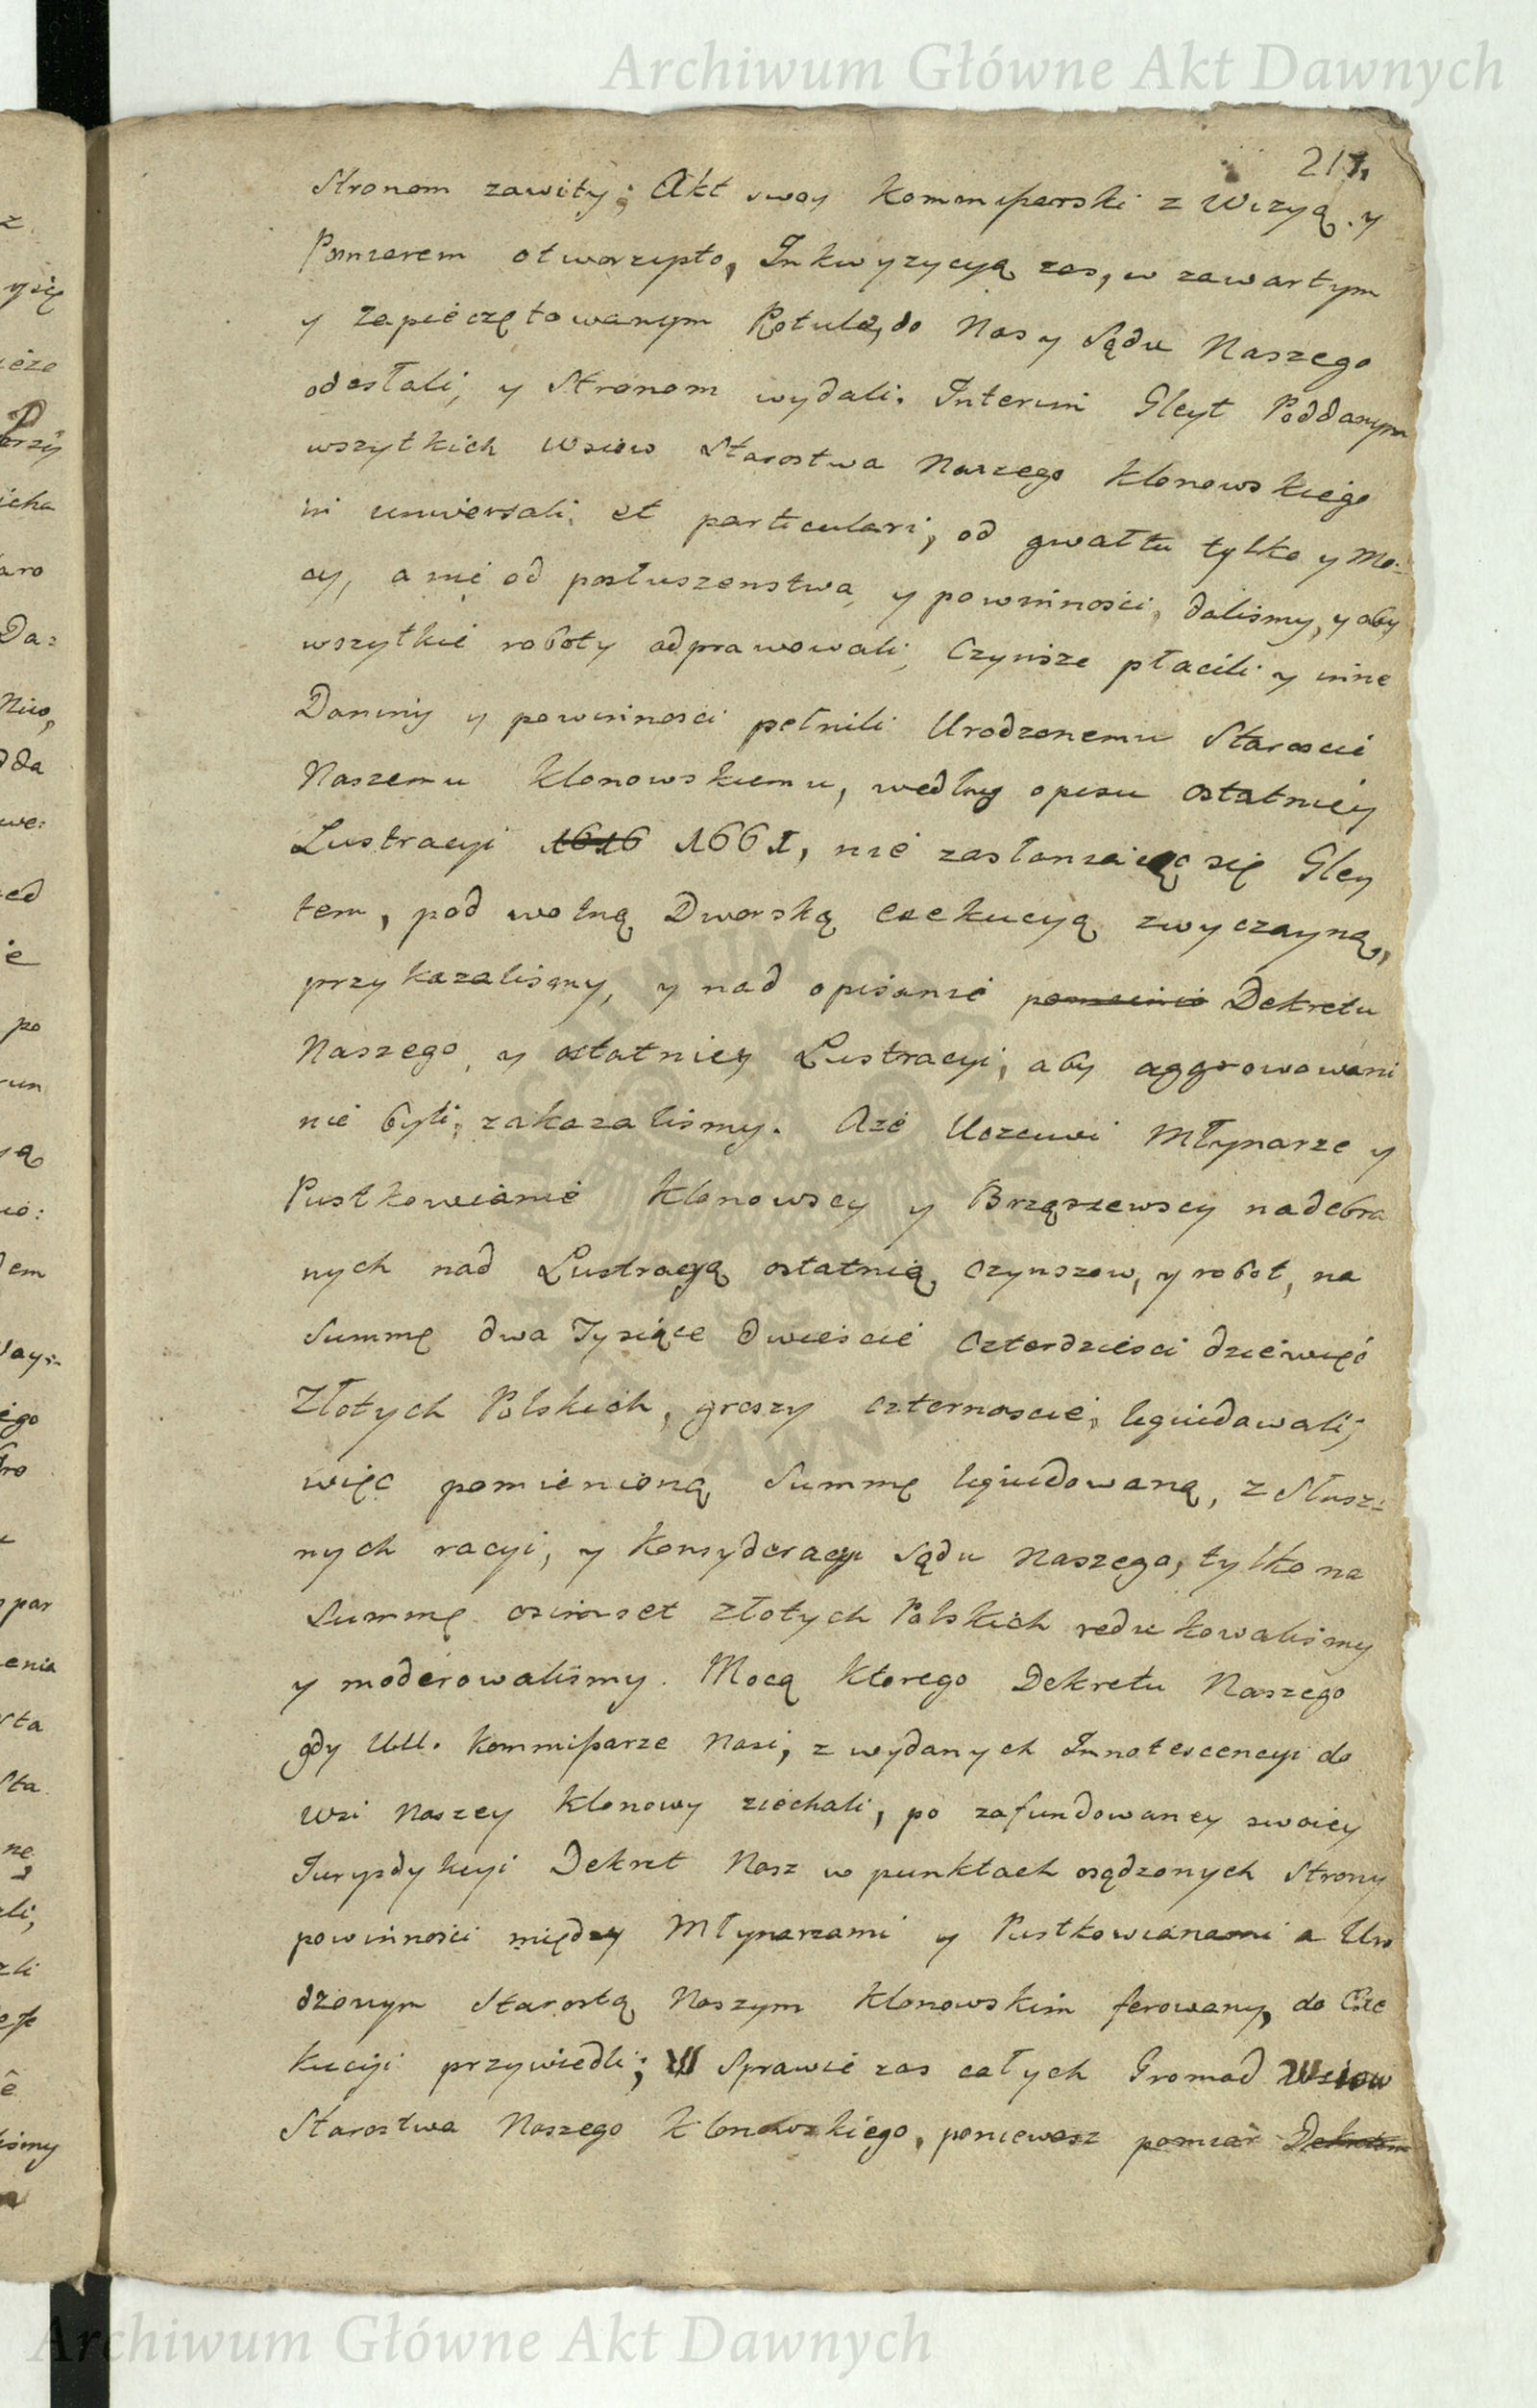 Archiwum Główne Akt Dawnych
217.
Stronom zawity; Akt swoy Kommissarski z Wizyą y
Pomiarem otworzysto, Inkwyzycyą zas, w zawartym
y zapieczętowanym Rotule, do Nas y Sądu Naszego
odesłali, y Stronom wydali. Interim Gleyt Poddanym
wszytkich Wsiow Starostwa Naszego Klonowskiego
in universali et particulari, od gwałtu tylko y Mo-
cy, a nie od posłuszenstwa y powinnosci, dalismy, y aby
wszytkie roboty odprawowali, Czynsze płacili y inne
Daniny y powinnosci pełnili Urodzonemu Staroscie
Naszemu Klonowskiemu, według opisu ostatniey
Lustracyi 1616 1661, nie zasłaniaiąc się Gley
tem, pod wolną Dworską exekucyą zwyczayną,
przykazalismy, y nad opisanie Dekretu
Naszego, y ostatniey Lustracyi, aby aggrawowani
nie byli, zakazalismy. Aże Uczciwi Młynarze y
Pustkowianie Klonowscy y Brząszewscy nadebra
nych nad Lustracyą ostatnią Czynszow, y robot, na
Summę dwa Tysiące dwiescie Czterdziesci dziewięć
Złotych Polskich, groszy czternascie, liquidowali;
więc pomienioną Summę liquidowaną, z Słusz-
nych racyi, y konsyderacyi Sądu Naszego, tylko na
Summę osimset Złotych Polskich redukowalismy
y moderowalismy. Mocą ktorego Dekretu Naszego
gdy UU. Kommissarze Nasi, z wydanych Innotescencyi do
Wsi Naszey Klonowy ziechali, po zafundowaney swoiey
Jurysdykcyi Dekret Nasz w punktach osądzonych Strony
powinnosci między Młynarzami y Pustkowianami a Uro
dzonym Starostą Naszym Klonowskim ferowany, do Exe
kucyi przywiedli; W Sprawie zas całych Gromad Wsiow
Starostwa Naszego Klonowskiego, poniewasz pomiar Dekretem
Archiwum Główne Akt Dawnych